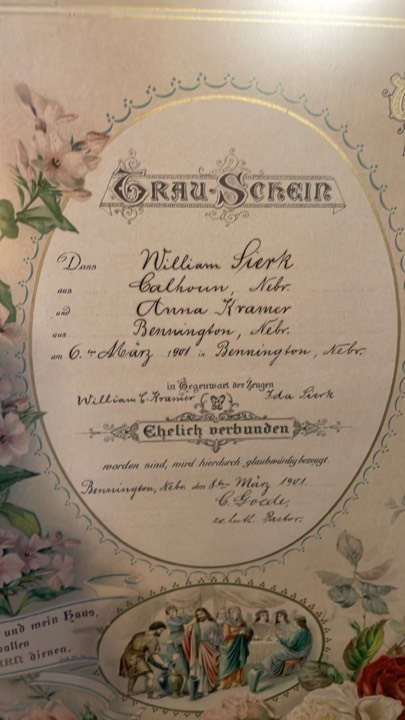 Trau-Schein
Dass William Sierk
aus Calhoun, Nebr.
und Anna Kramer
aus Bennington, Nebr.
am 6. ten März 1901 in Bennington, Nebr.
in Gegenwart der Zeugen
William C. Kramer Ida Sierk
Ehelich verbunden
worden sind, wird hierdurch glaubwürdig bezeugt.
Bennington, Nebr. den 8ten März 1901.
C. Goede,
ev. luth. Pastor.
und mein Haus,
wollen
dienen.